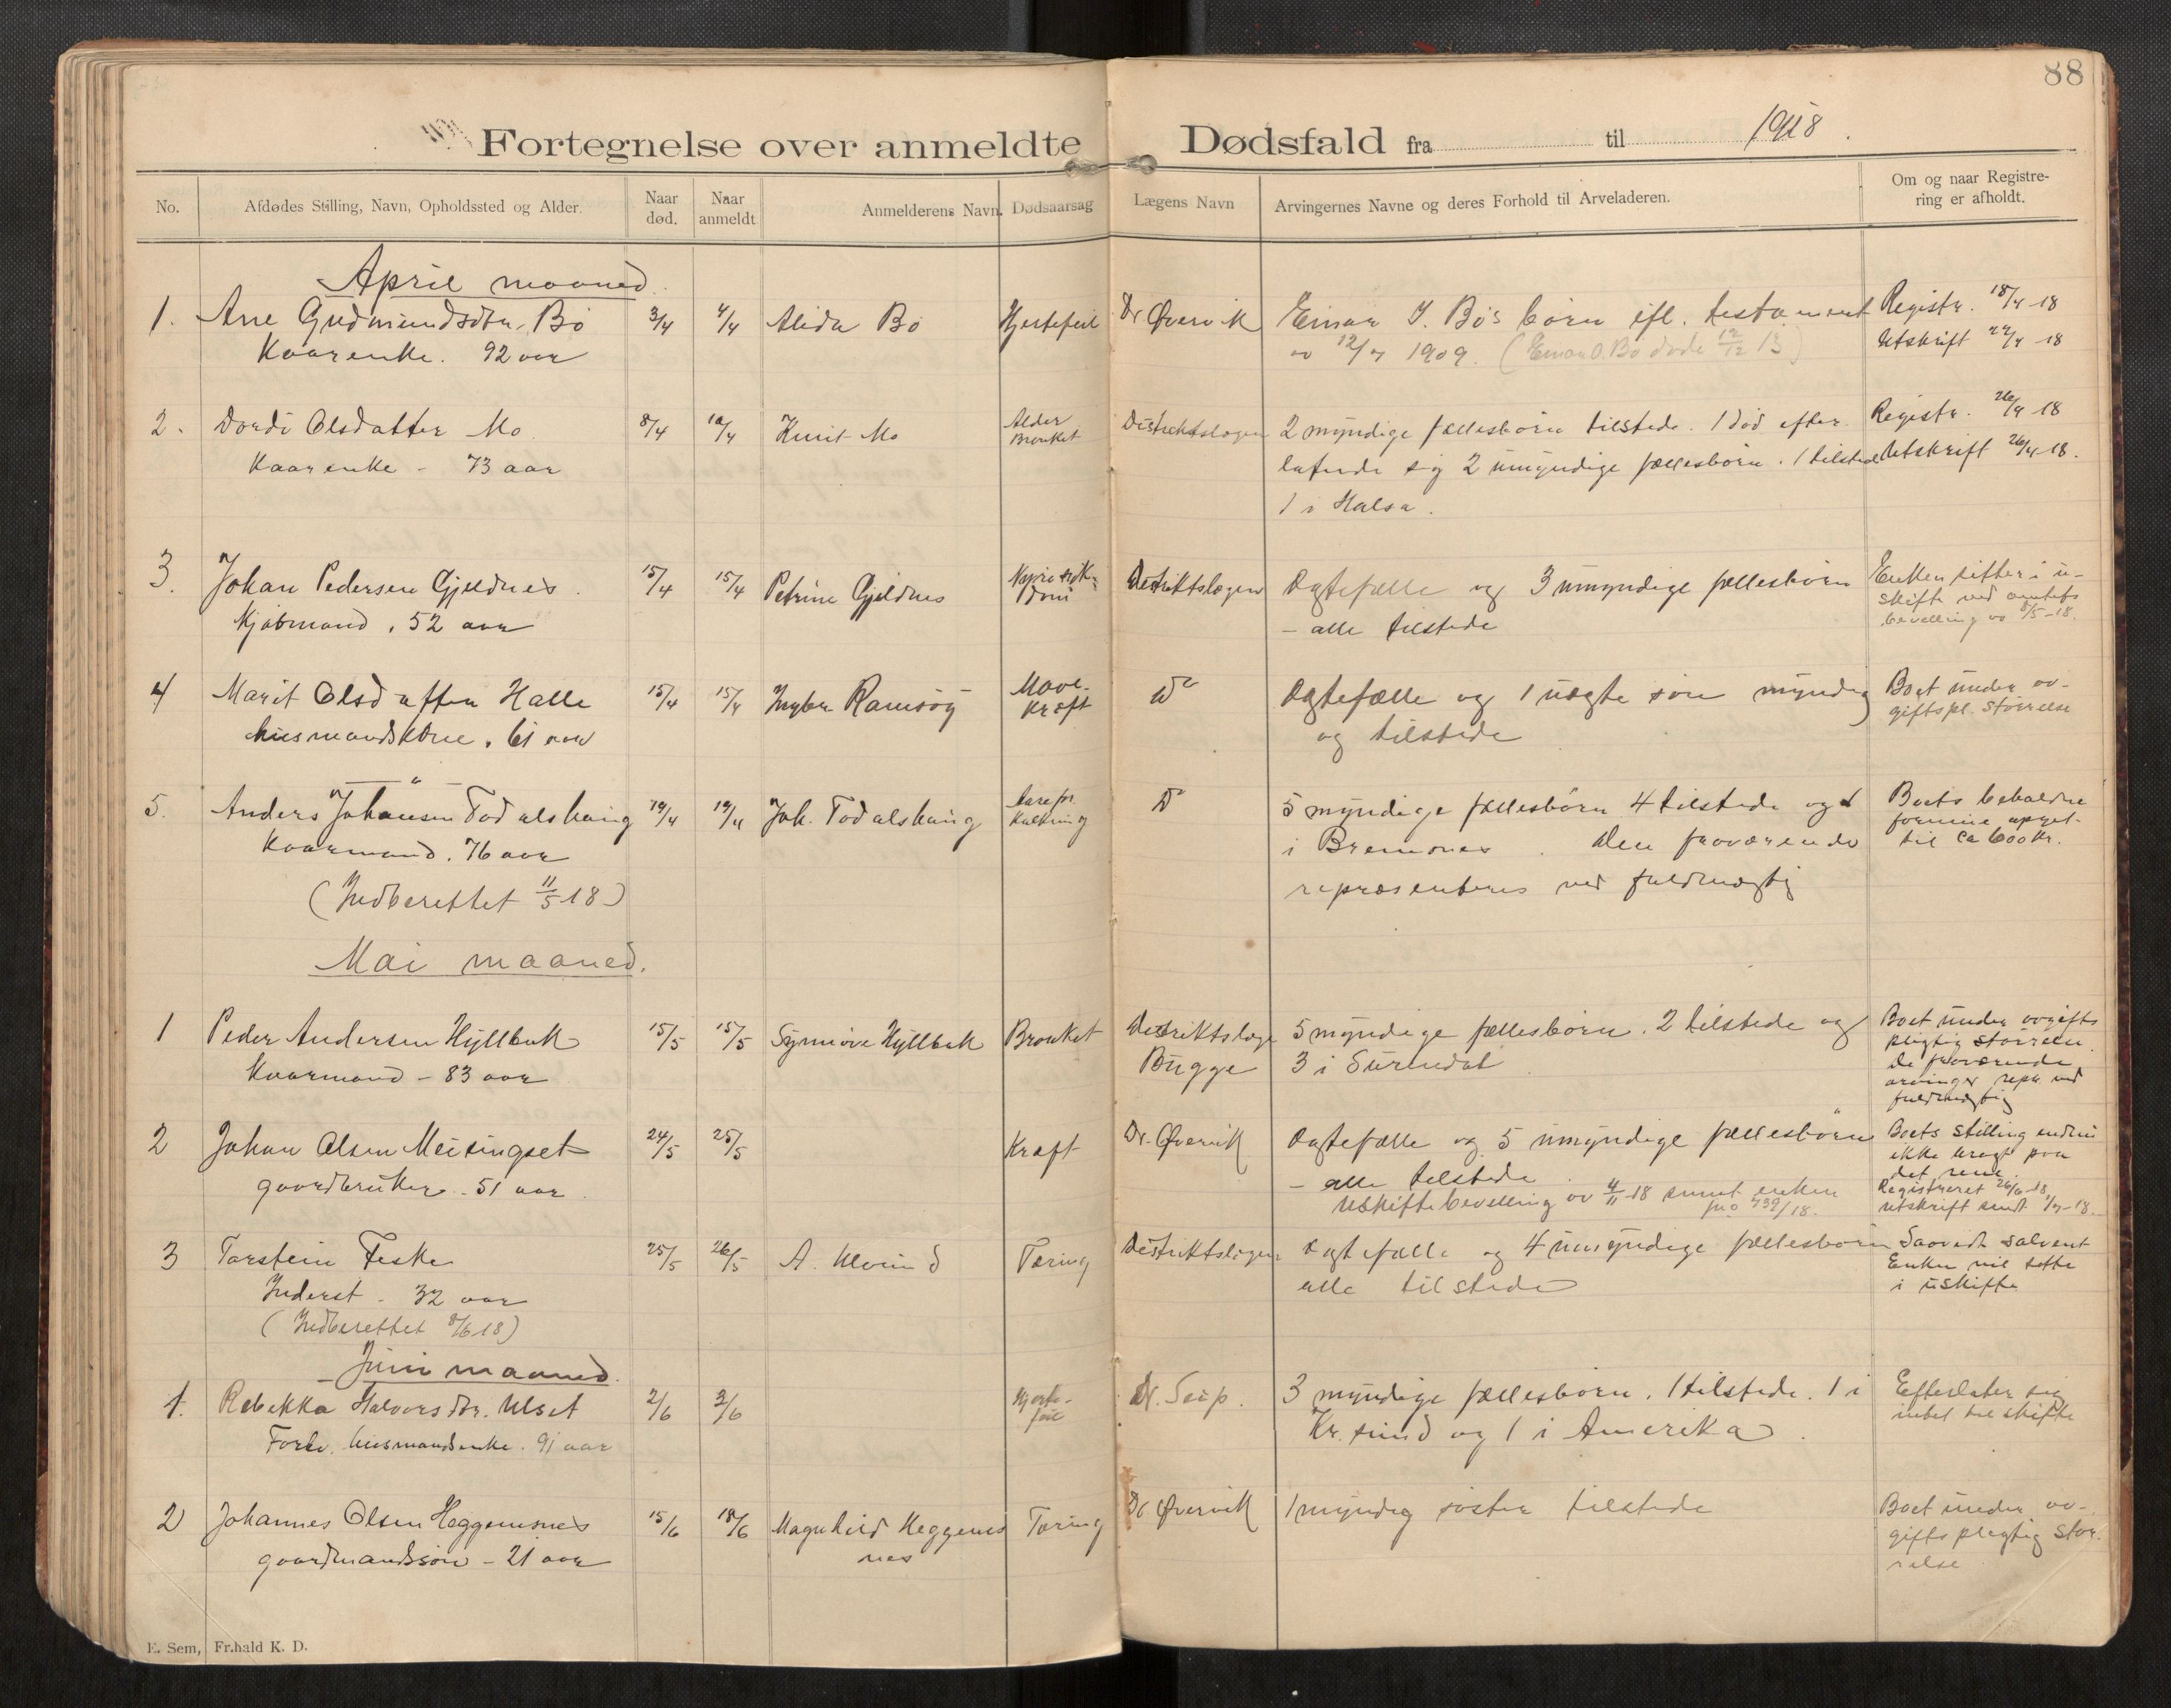 88
Fortegnelse over anmeldte Dødsfald fra til 1918.
No. Afdødes Stilling, Navn, Opholdssted og Alder. Naar død. Naar anmeldt Anmelderens Navn. Dødsaarsag Lægens Navn Arvingernes Navne og deres Forhold til Arveladeren. Om og naar Registrering er afholdt.
April maaned.
1. Ane Gudmundsdtr. Bø 3/4 4/4 Alida Bø Hjertefeil Dr Øvervik Einar I. Bøs børn ifl. testament Registr. 18/4-18
Kaarenke. 92 aar av 12/7 1909. (Einar O. Bø døde 12/12 13) Utskrift 22/4-18
2. Dordi Olsdatter Mo 8/4 10/4 Knut Mo Alder Bronket Distriktslægen 2 myndige fællesbørn tilstede. 1 død efter Registr. 26/4-18
Kaarenke - 73 aar latende sig 2 umyndige fællesbørn. 1 tilstede Utskrift 26/4-18.
1 i Halsa.
3. Johan Pedersen Gjeldnes. 15/4 15/4 Petrine Gjeldnes Distriktslægen Ægtefælle og 3 umyndige fællesbørn Enken sitter i u-
Kjøbmand. 52 aar - alle tilstede skifte ved amtets
bevilling av 8/5-18.
4 Marit Olsdatter Halle 15/4 15/4 Ingbr. Ramsøy Mave-kræft Do Ægtefælle og 1 uægte søn myndig Boet under av-
husmandskone. 61 aar og tilstede giftspl. størrelse
5. Anders Johansen Todalshaug 19/4 19/4 Joh. Todalshaug Aarefor kalkning Do 5 myndige fællesbørn 4 tilstede og 1 Boets beholdne
Kaarmand. 76 aar i Bremsnes. Den fraværende formue opget-
(Indberettet 11/5 18) repræsenteres ved fuldmægtig til ca 600 kr.
Mai maaned.
1 Peder Andersen Hyllbak 15/5 15/5 Synnøve Hyllbak Bronket Distriktslæge 5 myndige fællesbørn. 2 tilstede og Boet under avgifts
Kaarmand - 83 aar Bugge 3 i Surendal pligtig størrelse.
De fraværende
arvinger repr. ved
fuldmægtig
2 Johan Olsen Meisingset 24/5 25/5 Kræft Dr. Øvervik Ægtefælle og 5 umyndige fællesbørn Boets stilling endnu
gaardbruker - 51 aar - alle tilstede. ikke bragt paa
det rene.
Uskiftebevilling av 4/11-18 sendt enken Registreret 26/6-18
jno 739/18. utskrift sendt 1/7-18.
3 Torstein Feske 25/5 26/5 A. Ulvund Tæring Distriktslægen Ægtefælle og 4 umyndige fællesbørn Saavidt solvent
Inderst - 32 aar alle tilstede Enken vil sitte
(Indberettet 8/6 18) i uskifte
Juni maaned.
1. Rebekka Halvorsdtr. Ulset 2/6 3/6 Hjerte-feil Dr. Seip. 3 myndige fællesbørn. 1 tilstede. 1 i Efterlater sig
Forhv. husmandsenke. 91 aar Kr.sund og 1 i Amerika. intet til skifte
2 Johannes Olsen Heggemsnes 15/6 18/6 Magnhild Heggems Tæring Dr Øvervik 1 myndig søster tilstede Boet under av-
gaardmandssøn - 21 aar nes gifts pligtig stør-
relse
E. Sem, Fr.hald K. D.